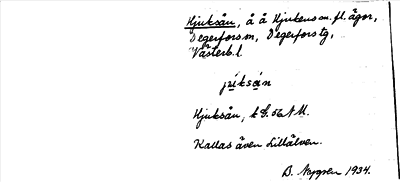 Kjuksån, å å Kjukens m. fl. ägor,
Degerfors sn, Degerfors tg,
Västerb. l.
Kjuksån, k G. 56 N M.
Kallas även Lillälven.
B. Nygren 1934.